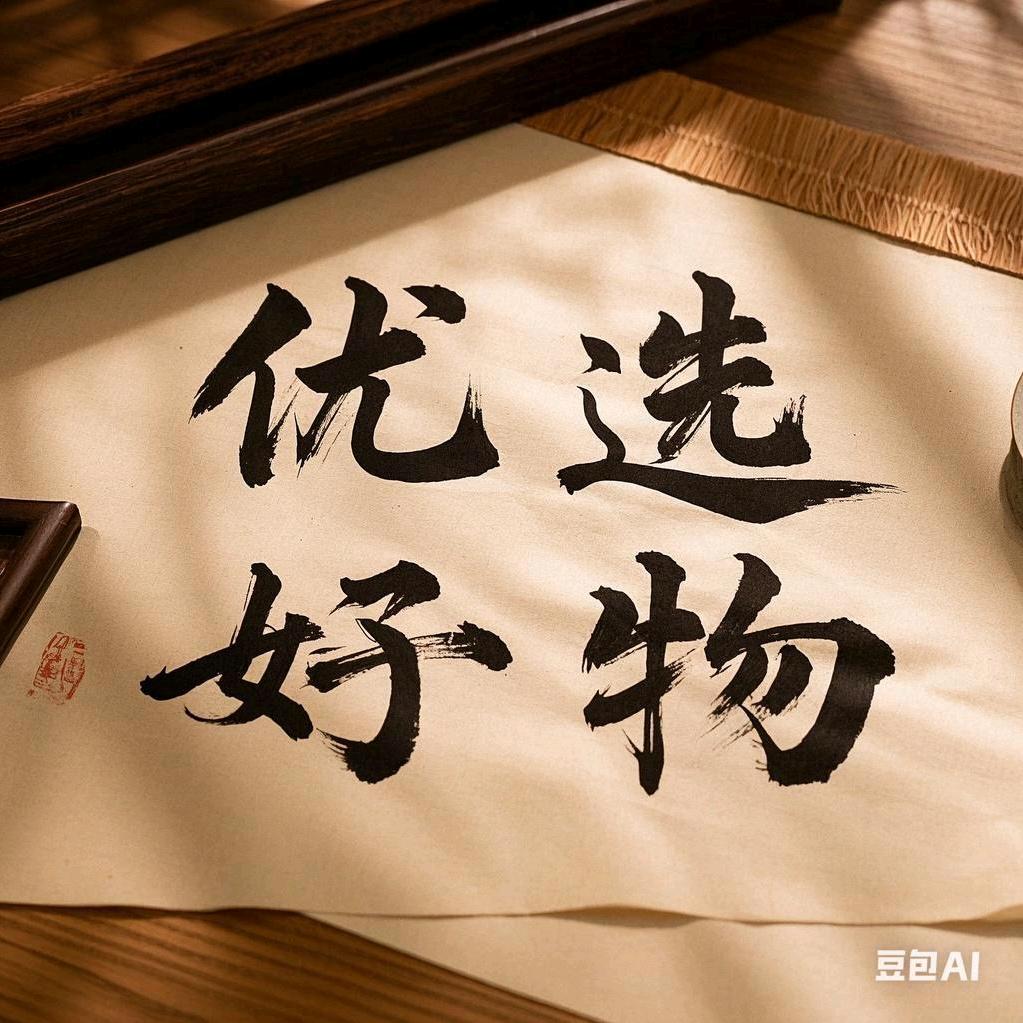 优选
好物
豆包AI